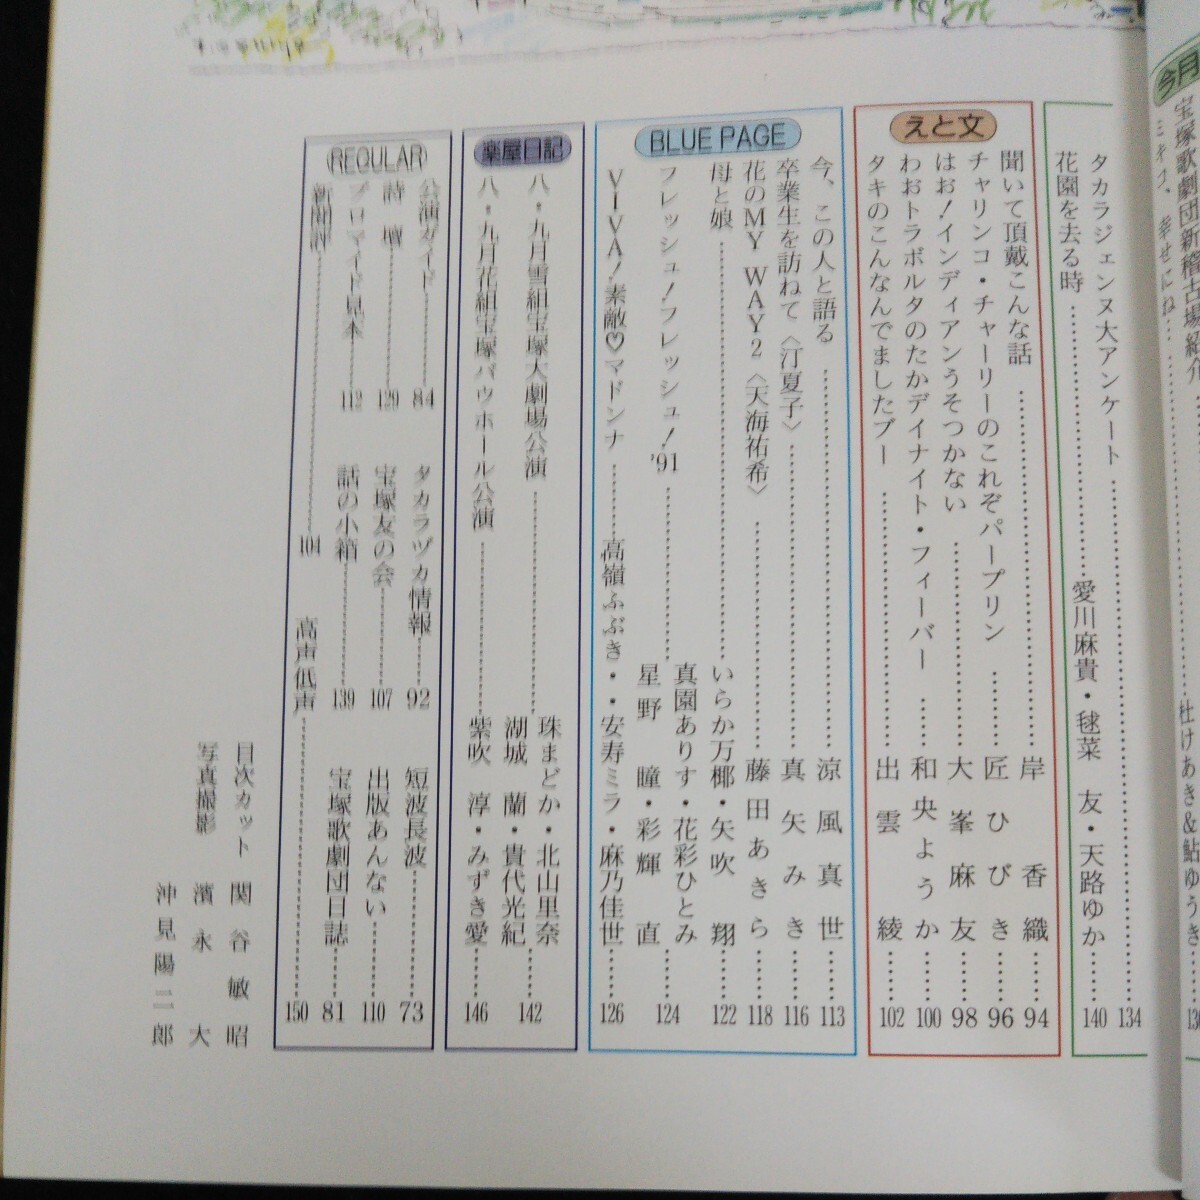 今月
宝塚歌劇団新稽古場紹介
ミオコ、幸せにね……杜けあき&鮎ゆうき……130
タカラジェンヌ大アンケート……134
花園を去る時……愛川麻貴・毬菜 友・天路ゆか……140
えと文
聞いて頂戴こんな話……岸 香織……94
チャリンコ・チャーリーのこれぞパープリン……匠ひびき……96
はお!インディアンうそつかない……大峯麻友……98
わおトラボルタのたかデイナイト・フィーバー……和央ようか……100
タキのこんなんでましたブー……出雲 綾……102
BLUE PAGE
今、この人と語る……涼風真世……113
卒業生を訪ねて〈汀夏子〉……真矢みき……116
花のMY WAY2〈天海祐希〉……藤田あきら……118
母と娘……いらか万椰・矢吹 翔……122
フレッシュ!フレッシュ!'91……真園ありす・花彩ひとみ
星野 瞳・彩輝 直……124
VIVA!素敵♡マドンナ……高嶺ふぶき・・安寿ミラ・麻乃佳世……126
楽屋日記
八・九月雪組宝塚大劇場公演……珠まどか・北山里奈
湖城 蘭・貴代光紀……142
八・九月花組宝塚バウホール公演……紫吹 淳・みずき愛……146
REGULAR
公演ガイド……84
タカラヅカ情報……92
短波長波……73
詩壇……129
宝塚友の会……107
出版あんない……110
ブロマイド見本……112
話の小箱……139
宝塚歌劇団日誌……81
新聞評……104
高声低声……150
目次カット 関谷敏昭
写真撮影 濱永 大
沖見陽二郎